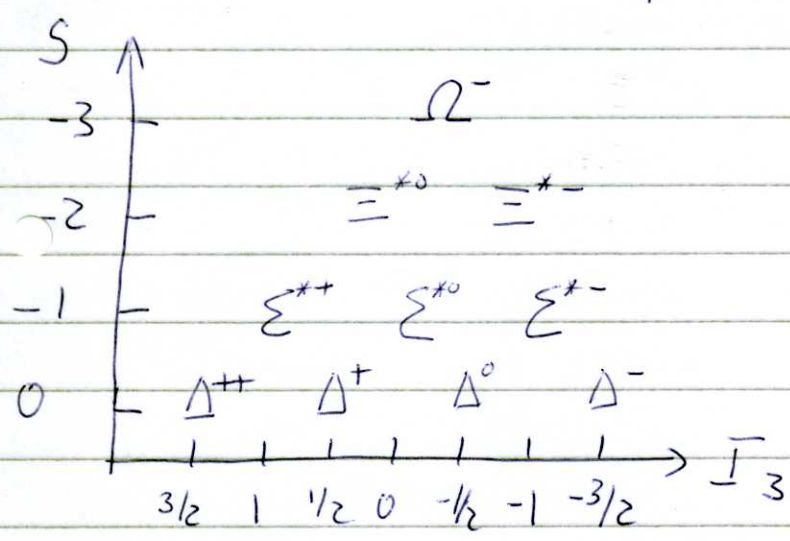 S
-3 Ω⁻
-2 Ξ*⁰ Ξ*⁻
-1 Σ*⁺ Σ*⁰ Σ*⁻
0 Δ⁺⁺ Δ⁺ Δ⁰ Δ⁻
I₃
3/2 1 1/2 0 -1/2 -1 -3/2